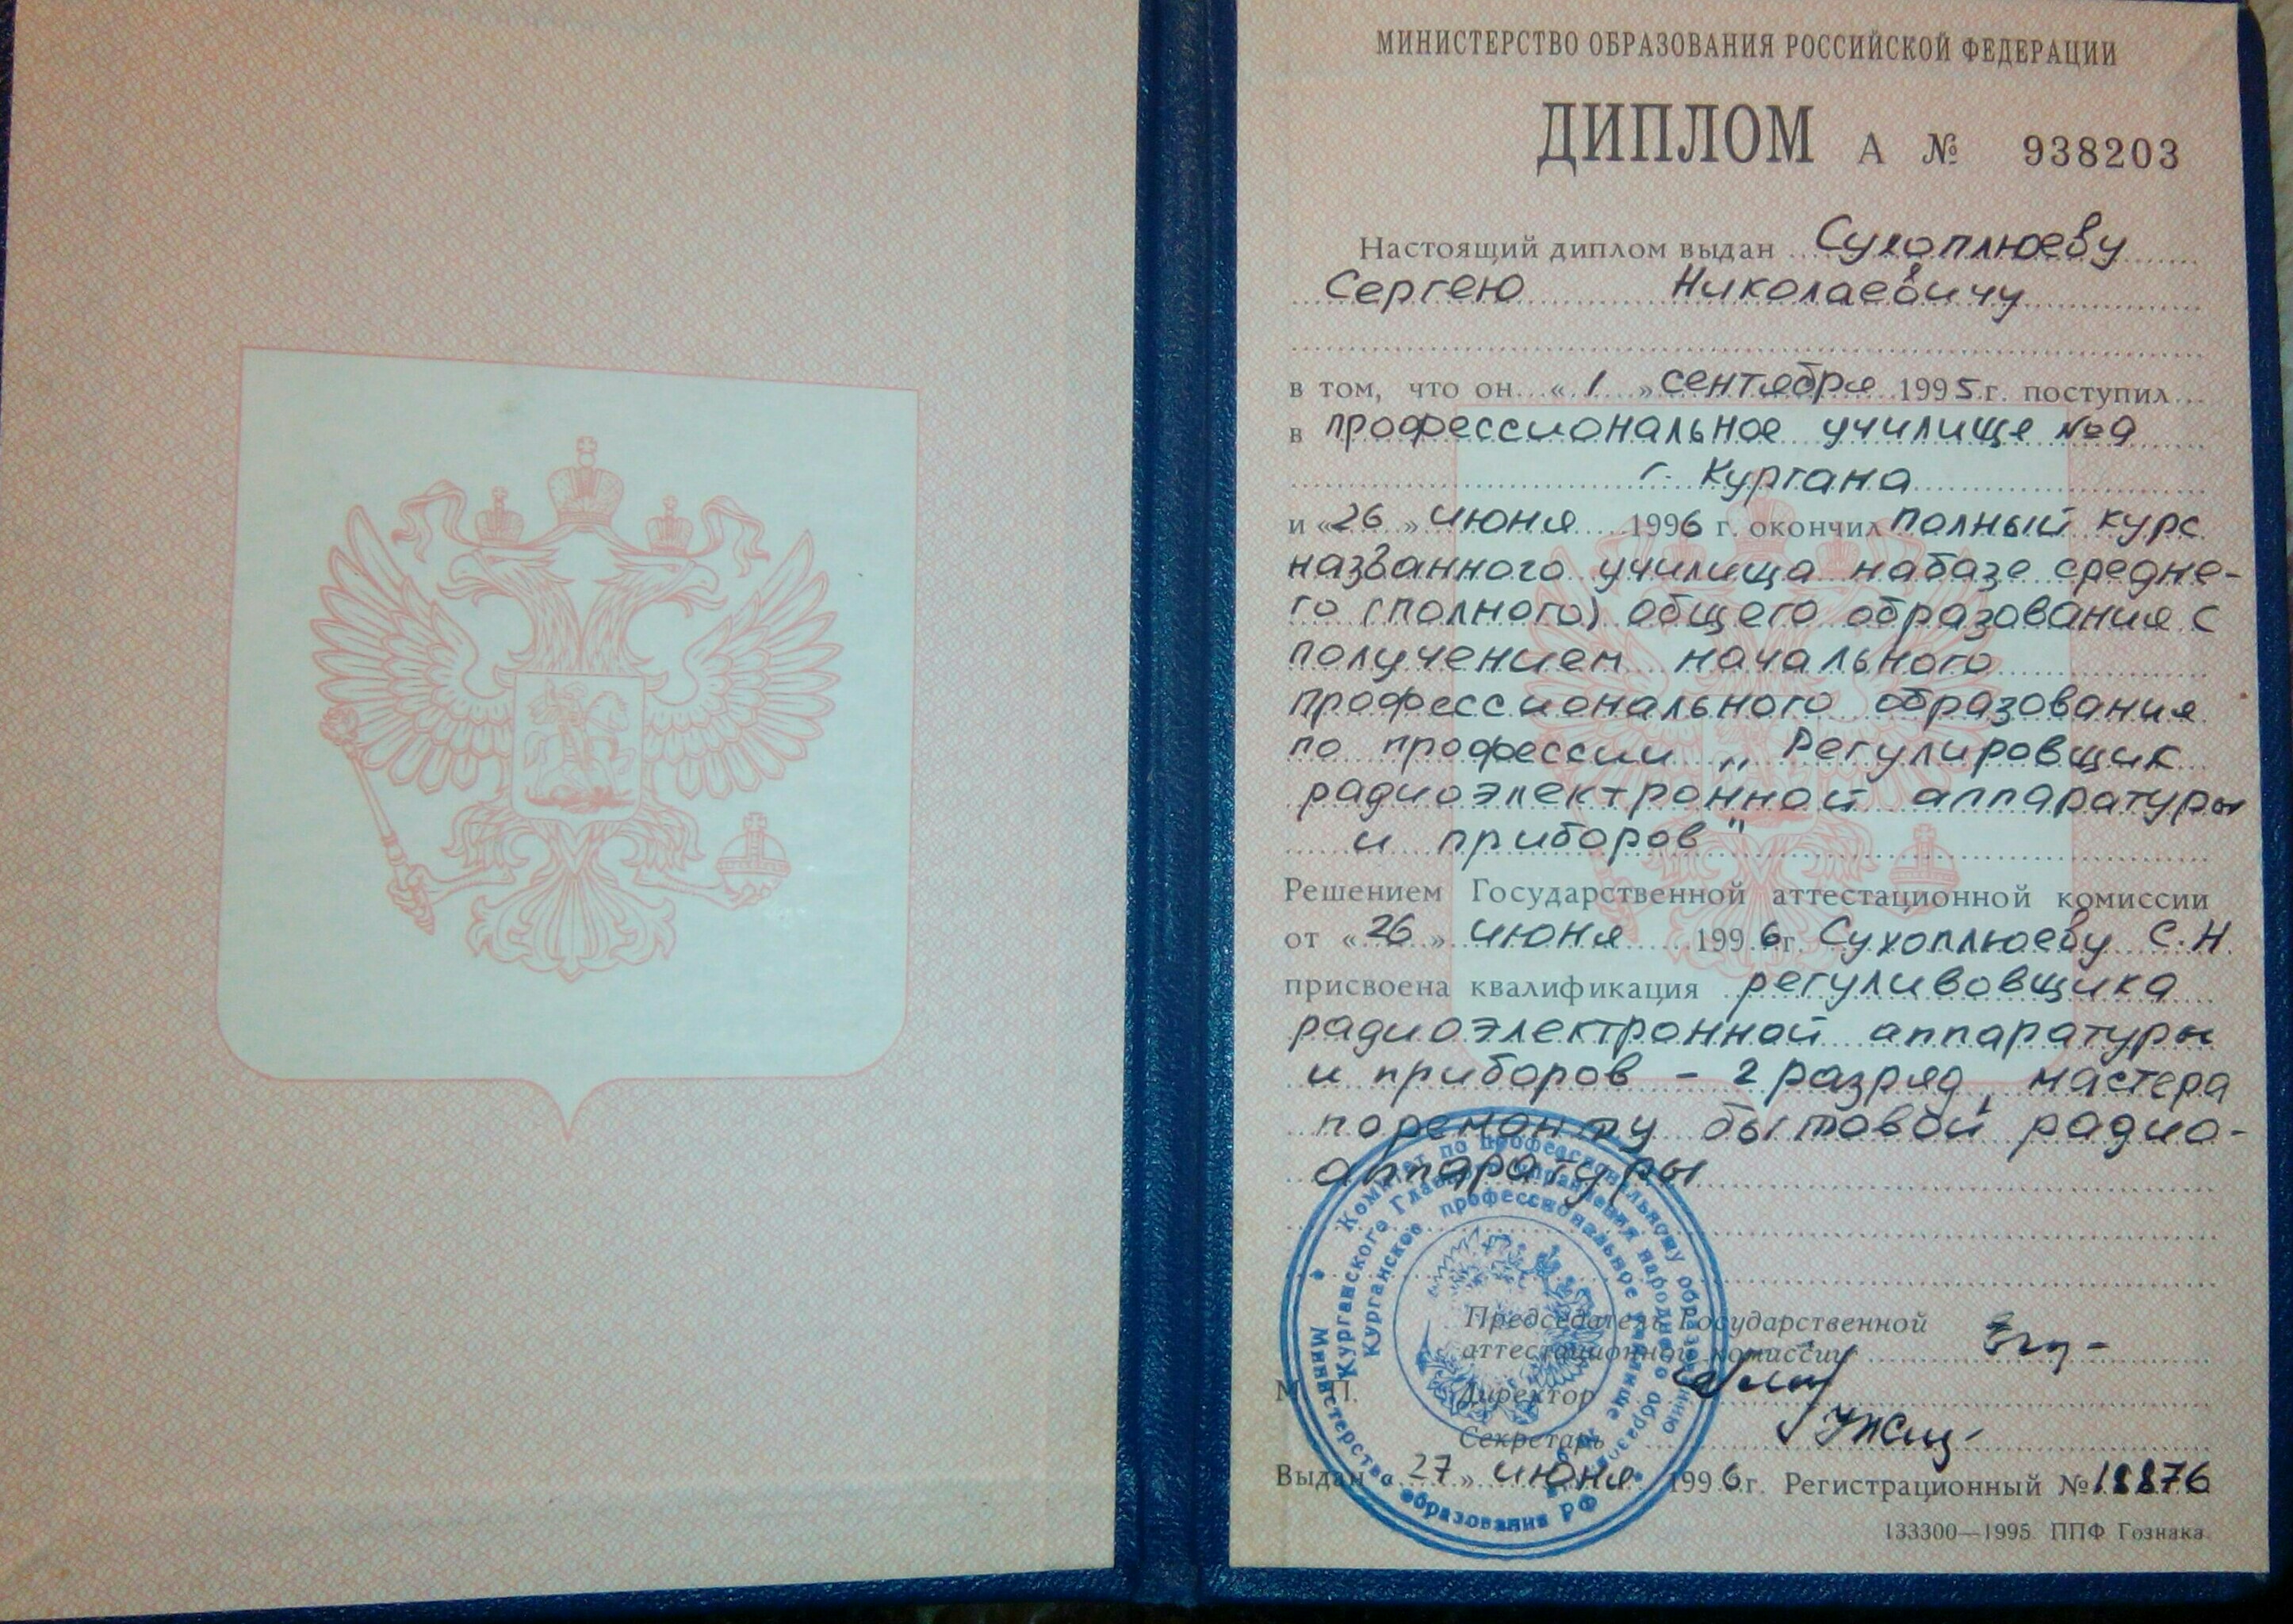 МИНИСТЕРСТВО ОБРАЗОВАНИЯ РОССИЙСКОЙ ФЕДЕРАЦИИ
ДИПЛОМ А № 938203
Настоящий диплом выдан Сухоплюеву
Сергею Николаевичу
в том, что он « 1 » сентября 1995 г. поступил
в профессиональное училище №9
г. Кургана
и «26» июня 1996 г. окончил полный курс
названного училища на базе средне-
го (полного) общего образования с
получением начального
профессионального образования
по профессии „Регулировщик
радиоэлектронной аппаратуры
и приборов"
Решением Государственной аттестационной комиссии
от «26» июня 1996 г. Сухоплюеву С.Н.
присвоена квалификация регуливовщика
радиоэлектронной аппаратуры
и приборов - 2 разряд, мастера
по ремонту бытовой радио-
аппаратуры
Комитет по профессиональному образованию
Курганского Главного управления народного образования
Курганское профессиональное училище
Министерство образования РФ
Председатель Государственной
аттестационной комиссии
М. П. Директор
Секретарь
Выдан 27 » июня 1996 г. Регистрационный № 18876
133300—1995 ППФ Гознака